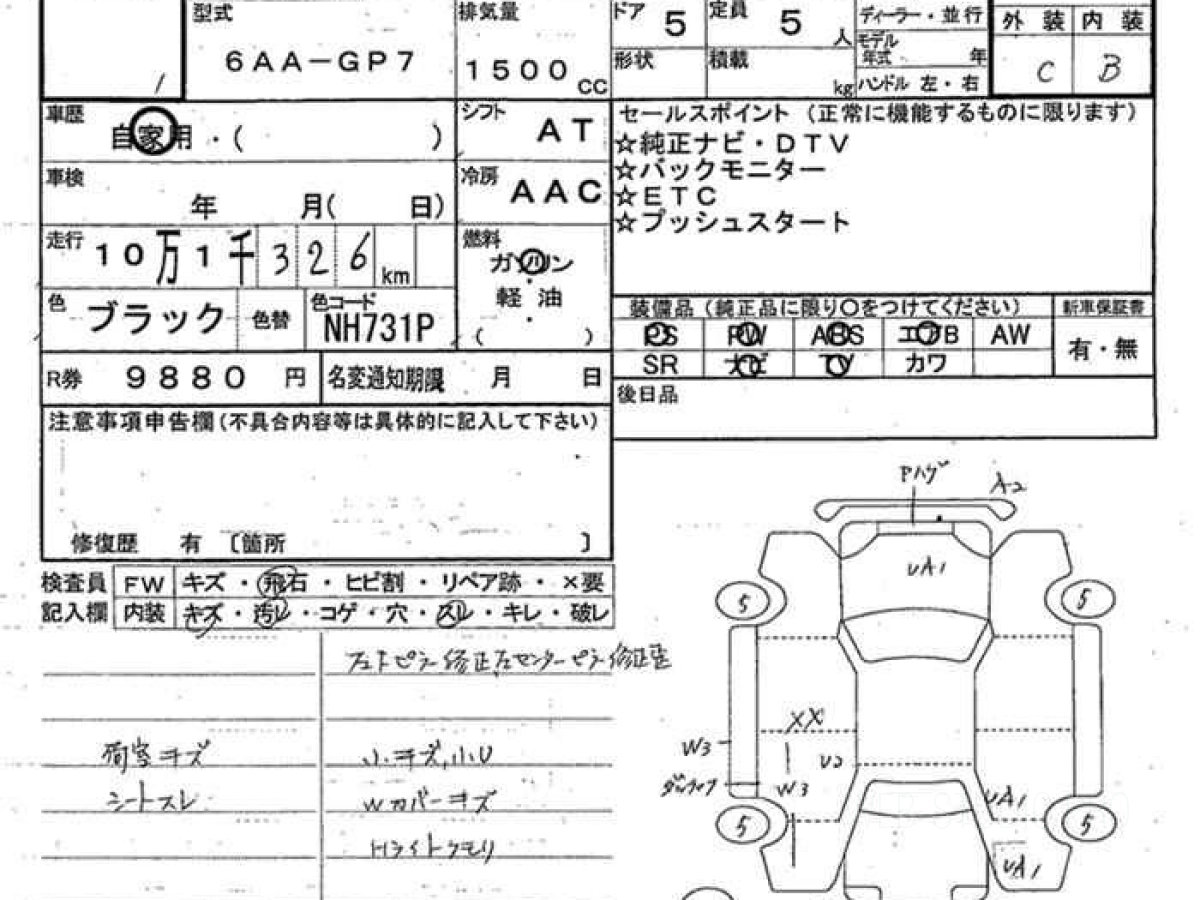 型式 排気量 ドア 5 定員 5 人 ディーラー・並行 外装 内装
6AA-GP7 1500cc 形状 積載 kg モデル年式 年 C B
ハンドル 左・右
車歴 自家用・( ) シフト AT セールスポイント（正常に機能するものに限ります）
☆純正ナビ・DTV
車検 年 月( 日) 冷房 AAC ☆バックモニター
☆ETC
☆プッシュスタート
走行 10万1千326km 燃料 ガソリン・軽油・( )
色 ブラック 色替 色コード NH731P 装備品（純正品に限り○をつけてください） 新車保証書
PS PW ABS エアB AW 有・無
SR ナビ TV カワ
R券 9880円 名変通知期限 月 日
後日品
注意事項申告欄(不具合内容等は具体的に記入して下さい)
修復歴 有 〔箇所 〕
検査員 FW キズ・飛石・ヒビ割・リペア跡・×要
記入欄 内装 キズ・汚レ・コゲ・穴・スレ・キレ・破レ
荷室キズ 小キズ,小U
シートスレ Wカバーキズ
Hライトクモリ
Pハゲ A2
UA1
5 5
XX
W3 U2
W3 UA1
5 5
UA1